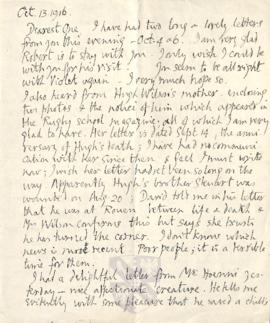 Oct. 13 1916
Dearest One, I have had two long & lovely letters
from you this evening – Oct 4 & 6. I am very glad
Robert is to stay with you – I only wish I could be
with you for his visit. You seem to be all right
with Violet again – I very much hope so.
I also heard from Hugh Wilson's mother – enclosing
two photos & the notice of him which appeared in
the Rugby school magazine; all of which I am very
glad to have. Her letter is dated Sept 14, the anni-
versary of Hugh's death; I have had no communi-
cation with her since then & feel I must write
now; I wish her letter had not been so long on the
way. Apparently Hugh's brother Steuart was
wounded on Aug 20. David told me in his letter
that he was at Rouen between life & death &
Mrs Wilson confirms this but says she
he has turned the corner. I don't know which
news is most recent. Poor people; it is a terrible
time for them.
I had a delightful letter from Mr yes-
terday – most affectionate creature. He tells me
evidently with some pleasure that he was a